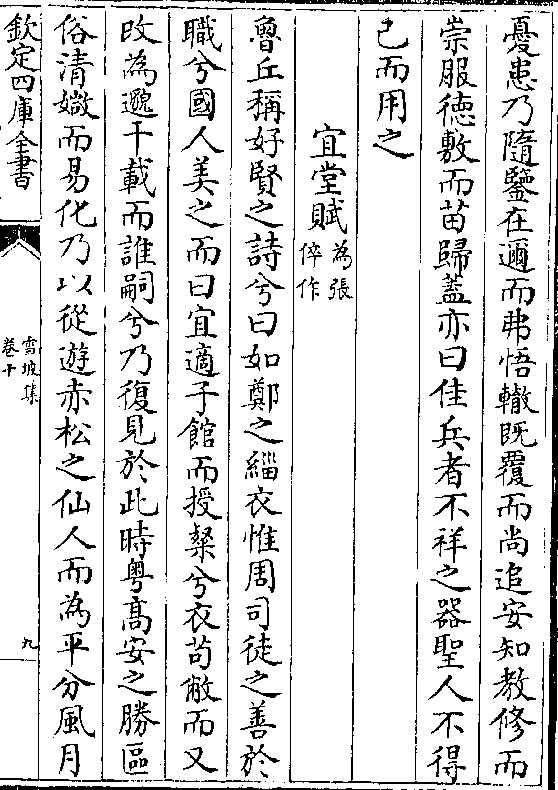 憂患乃隨鑒在邇而弗悟轍既覆而尚追安知教修而
崇服徳敷而苗歸蓋亦曰佳兵者不祥之器聖人不得
已而用之
宜堂賦為張倅作
魯丘稱好賢之詩兮曰如鄭之緇衣惟周司徒之善於
職兮國人美之而曰宜適子館而授粲兮衣茍敝而又
改為邈千載而誰嗣兮乃復見於此時粤髙安之勝區
俗清媺而易化乃以從遊赤松之仙人而為平分風月
欽定四庫全書
雪坡集
卷十
九